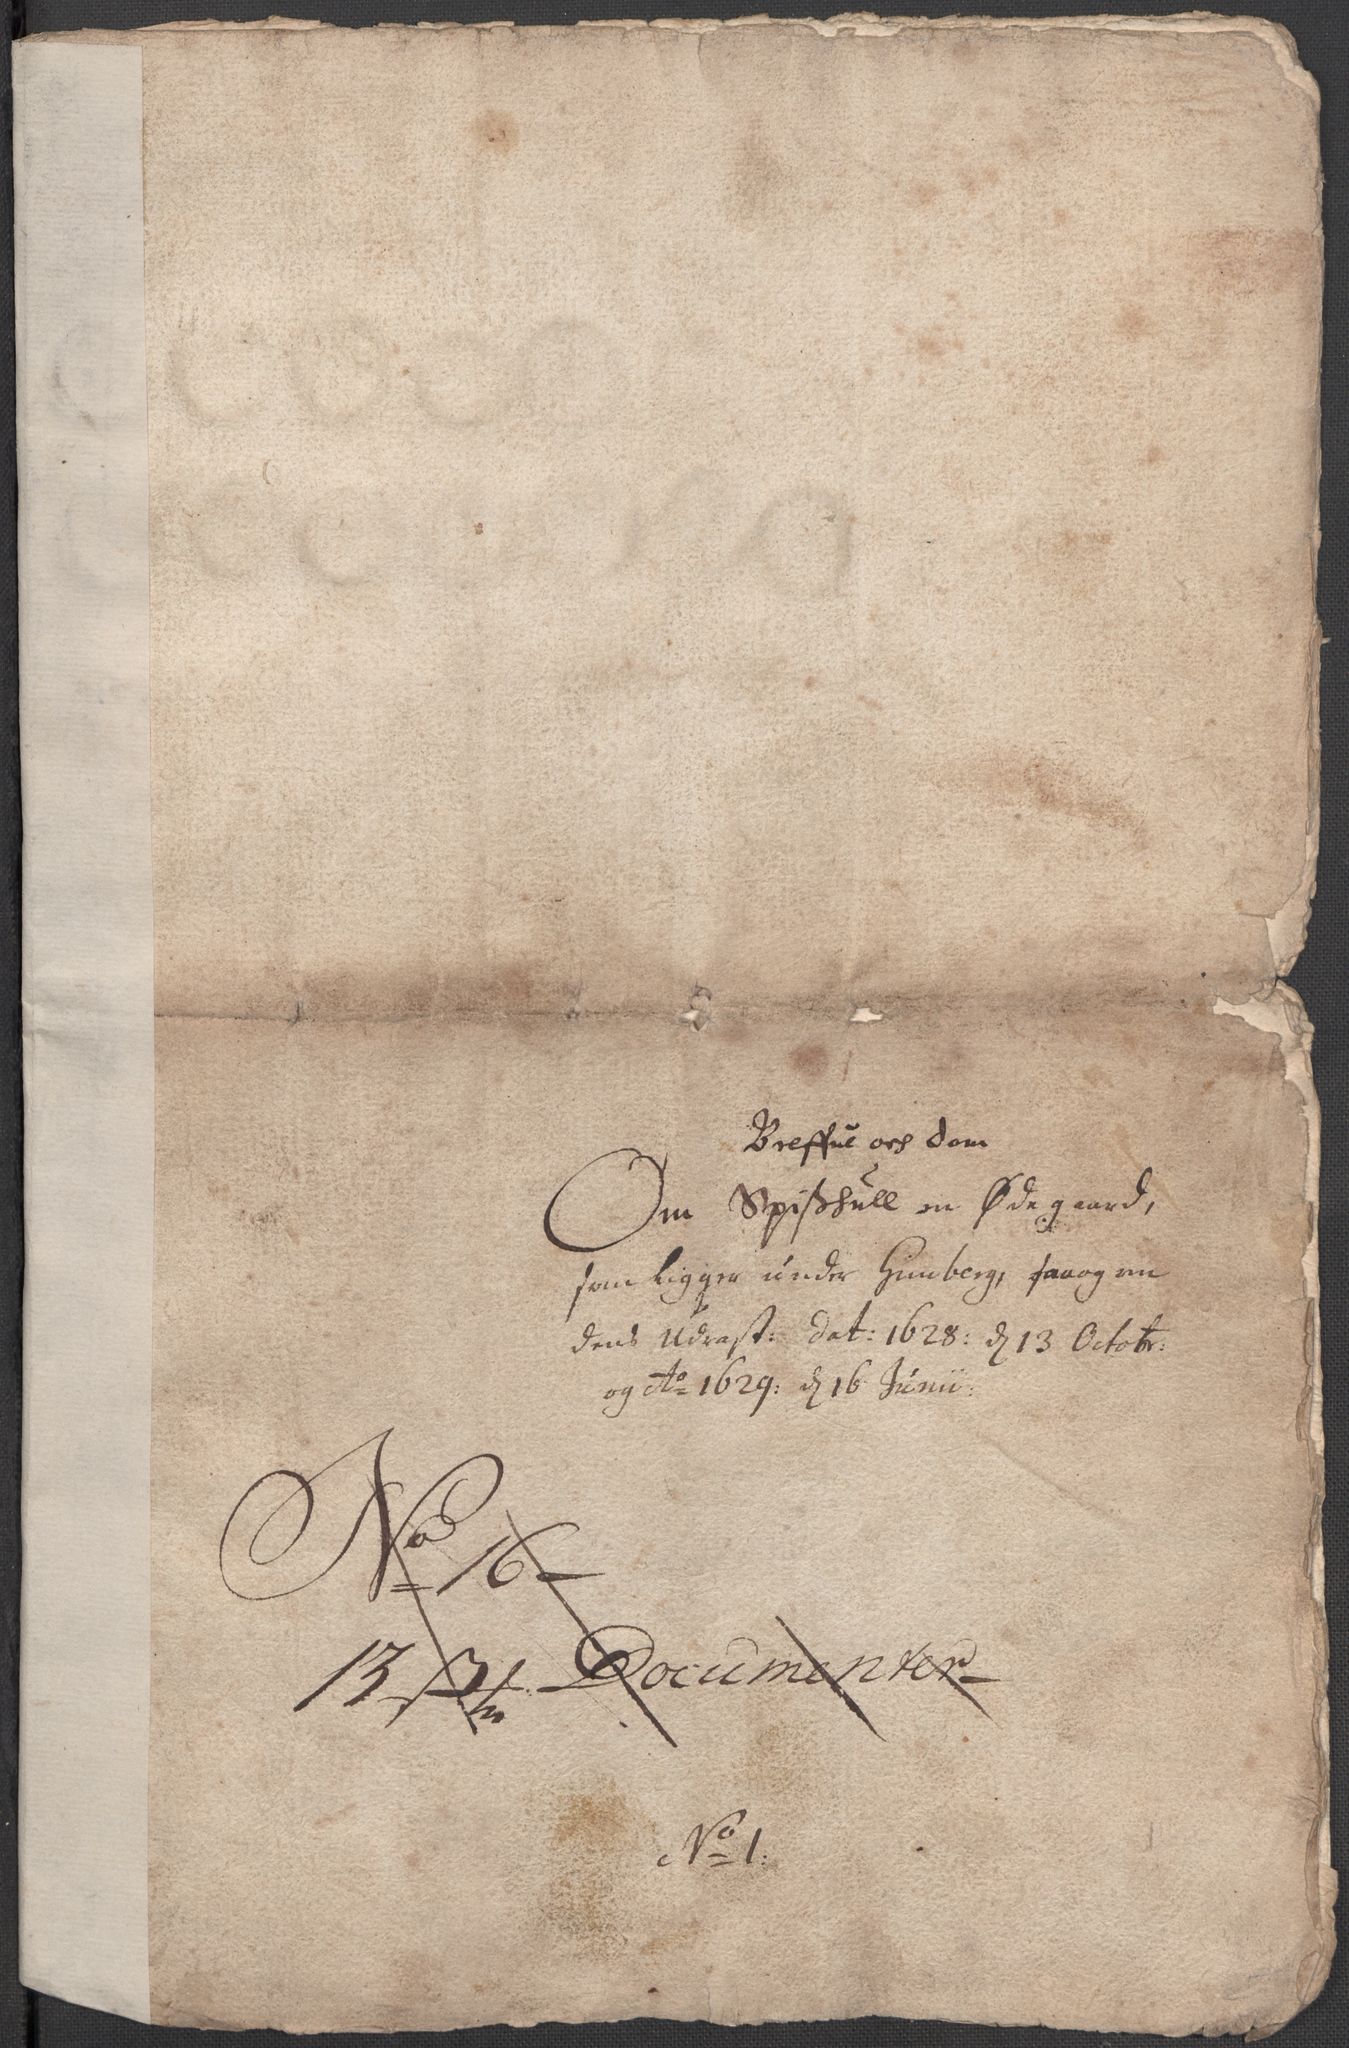 Breffue och dom
Om Spißhüll en Øde gaard,
som ligger under Himberg, saa og om
dens Udrast: dat: 1628: d 13 Octobr:
og Ao 1629: d 16 Junii:
No 16
13 Documenter
No 1: